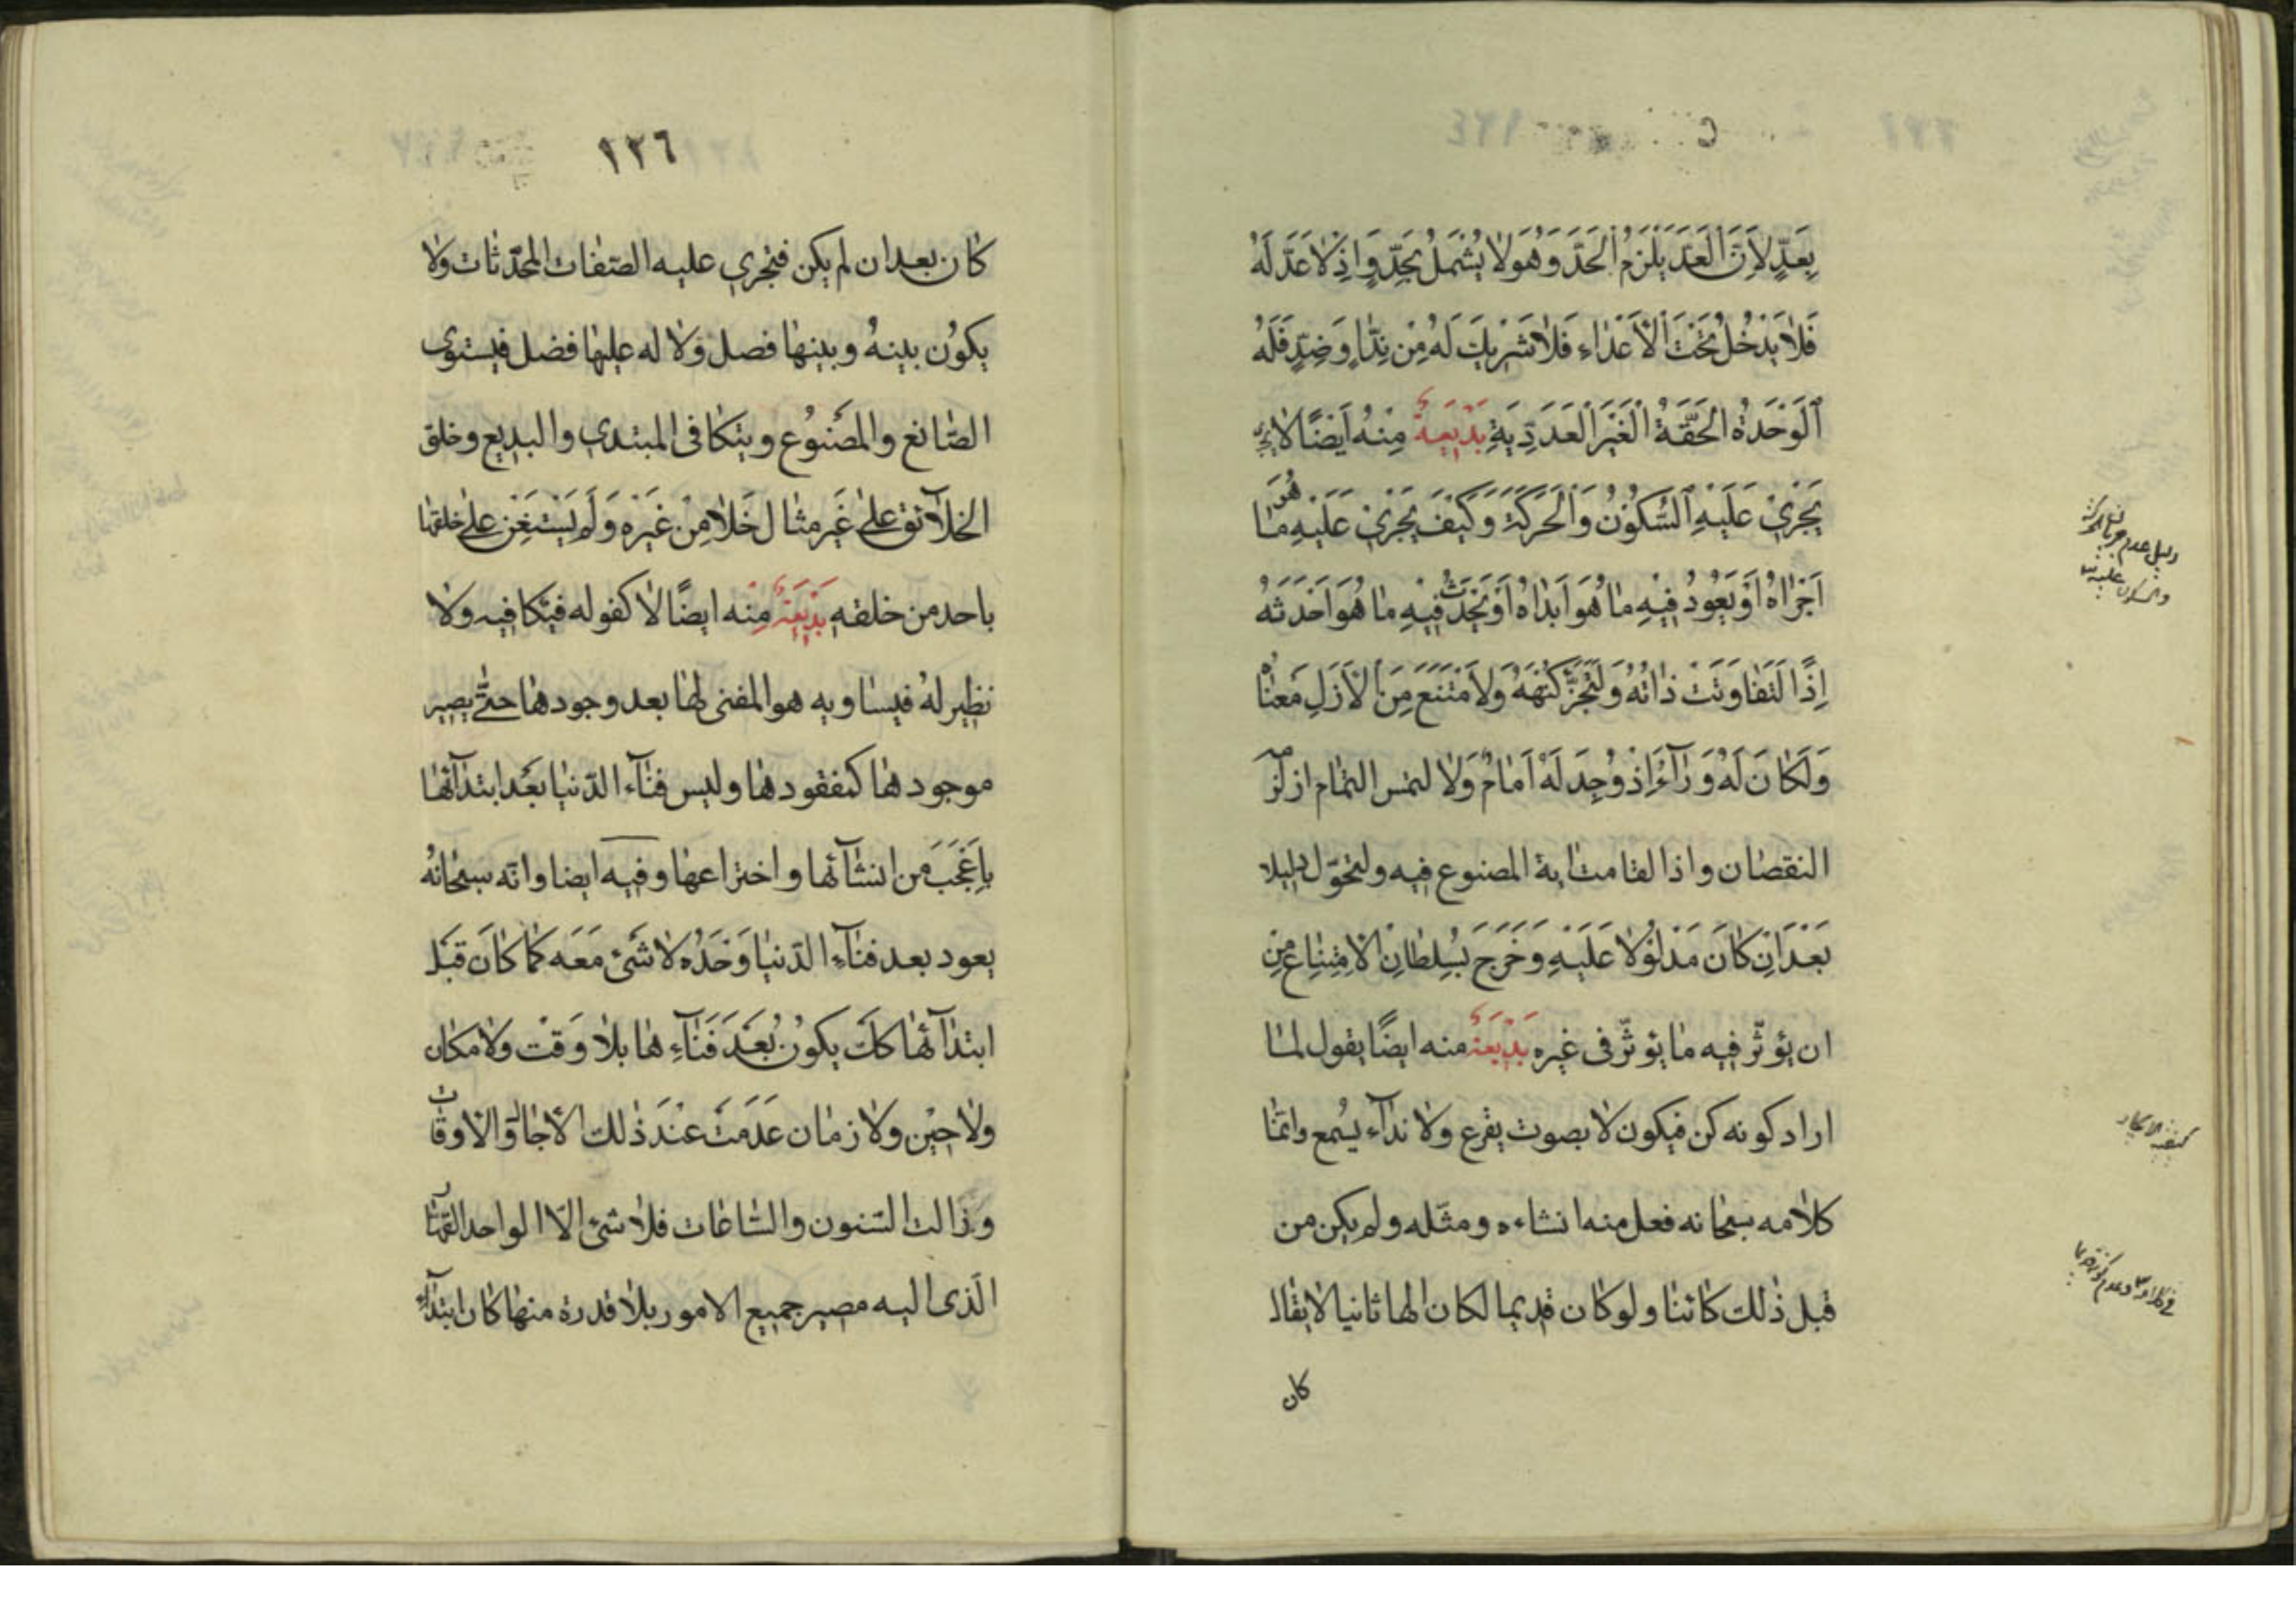 بِعَدٍّ لِاَنَّ الْعَدَّ يَلْزَمُ الْحَدَّ وَهُوَ لا يُشْمَلُ بِحَدٍّ وَاِذْ لاٰ عَدَّ لَهُ
فَلاٰ يَدْخُلُ تَحْتَ الْاَعْدٰاءِ فَلاٰ شَرِيكَ لَهُ مِنْ نِدٍّ وَضِدٍّ فَلَهُ
اَلْوَحْدَةُ الْحَقَّةُ الْغَيْرُ الْعَدَدِيَّةِ بَدِيعَةٌ مِنْهُ اَيْضًا لاٰ
يَجْرِيْ عَلَيْهِ السُّكُوْنُ وَالْحَرَكَةُ وَكَيْفَ يَجْرِيْ عَلَيْهِ مٰا هُوَ
اَجْرٰاهُ اَوْ يَعُوْدُ فِيْهِ مٰا هُوَ اَبْدٰاهُ اَوْ يَحْدُثُ فِيْهِ مٰا هُوَ اَحْدَثَهُ
اِذًا لَتَفٰاوَتَتْ ذٰاتُهُ وَلَتَجَزَّءَ كُنْهُهُ وَلاَمْتَنَعَ مِنَ الْاَزَلِ مَعْنٰاهُ
وَلَكٰانَ لَهُ وَرٰآءٌ اِذْ وُجِدَ لَهُ اَمٰامٌ وَلاٰ لتمس التمٰام اذ لزمه
النقصٰان واذا لقامت اية المصنوع فيه ولتحوّل دليلا
بَعْدَ اَنْ كٰانَ مَدْلُوْلاً عَلَيْهِ وَخَرَجَ بِسُلْطٰانِ الْاِمْتِنٰاعِ مِنْ
ان يؤثّر فيه مٰا يؤثّر فى غيره بَدِيْعَةٌ منه ايضًا يقول لمٰا
اراد كونه كن فيكون لاٰ بصوت يقرع ولاٰ ندٰآء يُسمع وانّمٰا
كلاٰمه سبحٰانه فعل منه انشاءه ومثّله ولم يكن من
قبل ذٰلك كائنٰا ولو كٰان قديما لكان الها ثانيا لا يقٰال
كان
دليل عدم جريان الحركة
والسكون عليه
كيفية الايجاد
١٢٦
كٰان بعد ان لم يكن فتجري عليه الصّفٰات المحدَثٰات ولاٰ
يكوُن بينهُ وبينهٰا فصل ولاٰ له عليهٰا فضل فيستوى
الصّٰانع والمصَنوُع ويتكٰافى المبتدي والبديع وخلق
الخلٰآئق علىٰ غَيرِ مثٰال خَلاٰ مِنْ غَيْرِهِ وَلَمْ يَسْتَعِنْ علىٰ خلقهٰا
باحد من خلقه بَدِيْعَةٌ مِنْه ايضًا لاٰ كفو له فيكافيه ولاٰ
نظير لهُ فيسٰاويه هو المفنى لهٰا بعد وجودهٰا حتّٰى يصير
موجودهٰا كمفقودهٰا وليس فنٰآء الدّنيٰا بعَد ابتدٰآئهٰا
بِاَعْجَبَ من انشٰآئها واختراعهٰا وفيه ايضا وانّه سبحٰانهُ
يعود بعد فنٰآءِ الدّنيٰا وَحْدَهُ لاٰ شَىْءَ مَعَه كمٰا كٰانَ قَبْلَ
ابتدٰآئهٰا كك يكوُن بُعَدَ فَنٰآءِ هٰا بلاٰ وَقْت ولاٰ مكان
ولاٰ حِيْن ولاٰ زمٰان عَدِمَتْ عِنْدَ ذٰلك الاٰجٰال والاوقٰات
وزٰالت السّنون والسّٰاعٰات فلاٰ شئ الاّ الواحد القهّٰار
الّذى اليه مصير جميع الامور بلاٰ قدرة منهٰا كٰان ابتدٰآء